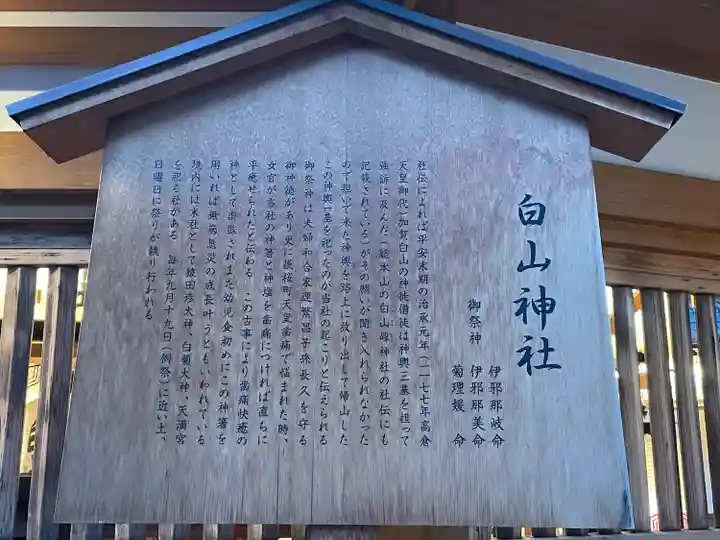 白山神社
御祭神　伊邪那岐命
伊邪那美命
菊理媛　命
社伝によれば平安末期の治承元年(一一七七年高倉
天皇御代)加賀白山の神徒僧徒は神輿三基を担って
強訴に及んだ(総本山の白山峰神社の社伝にも
記載されている)がその願いが聞き入れられなかった
ので担いで来た神輿を路上に放り出して帰山した
この神輿一基を祀ったのが当社の起こりと伝えられる
御祭神は夫婦和合家運繁昌子孫長久を守る
御神徳があり史に後桜町天皇歯痛で悩まれた時、
女官が当社の神箸と神塩を歯痛につければ直ちに
平癒せられたと伝わる　この古事により歯痛快癒の
神として崇敬されまた幼児食初めにこの神箸を
用いれば無病息災の成長叶うともいわれている
境内には末社として猿田彦大神、白菊大神、天満宮
を祀る社がある　毎年九月十九日(例祭)に近い土、
日曜日に祭りが執り行われる